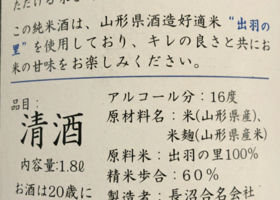 この純米酒は、山形県酒造好適米“出羽の
里”を使用しており、キレの良さと共にお
米の甘味をお楽しみください。
品目：
清酒
内容量:1.8ℓ
お酒は20歳に
アルコール分：16度
原材料名：米(山形県産)、
米麹(山形県産米)
原料米：出羽の里100%
精米歩合：60%
製造者：長沼合名会社